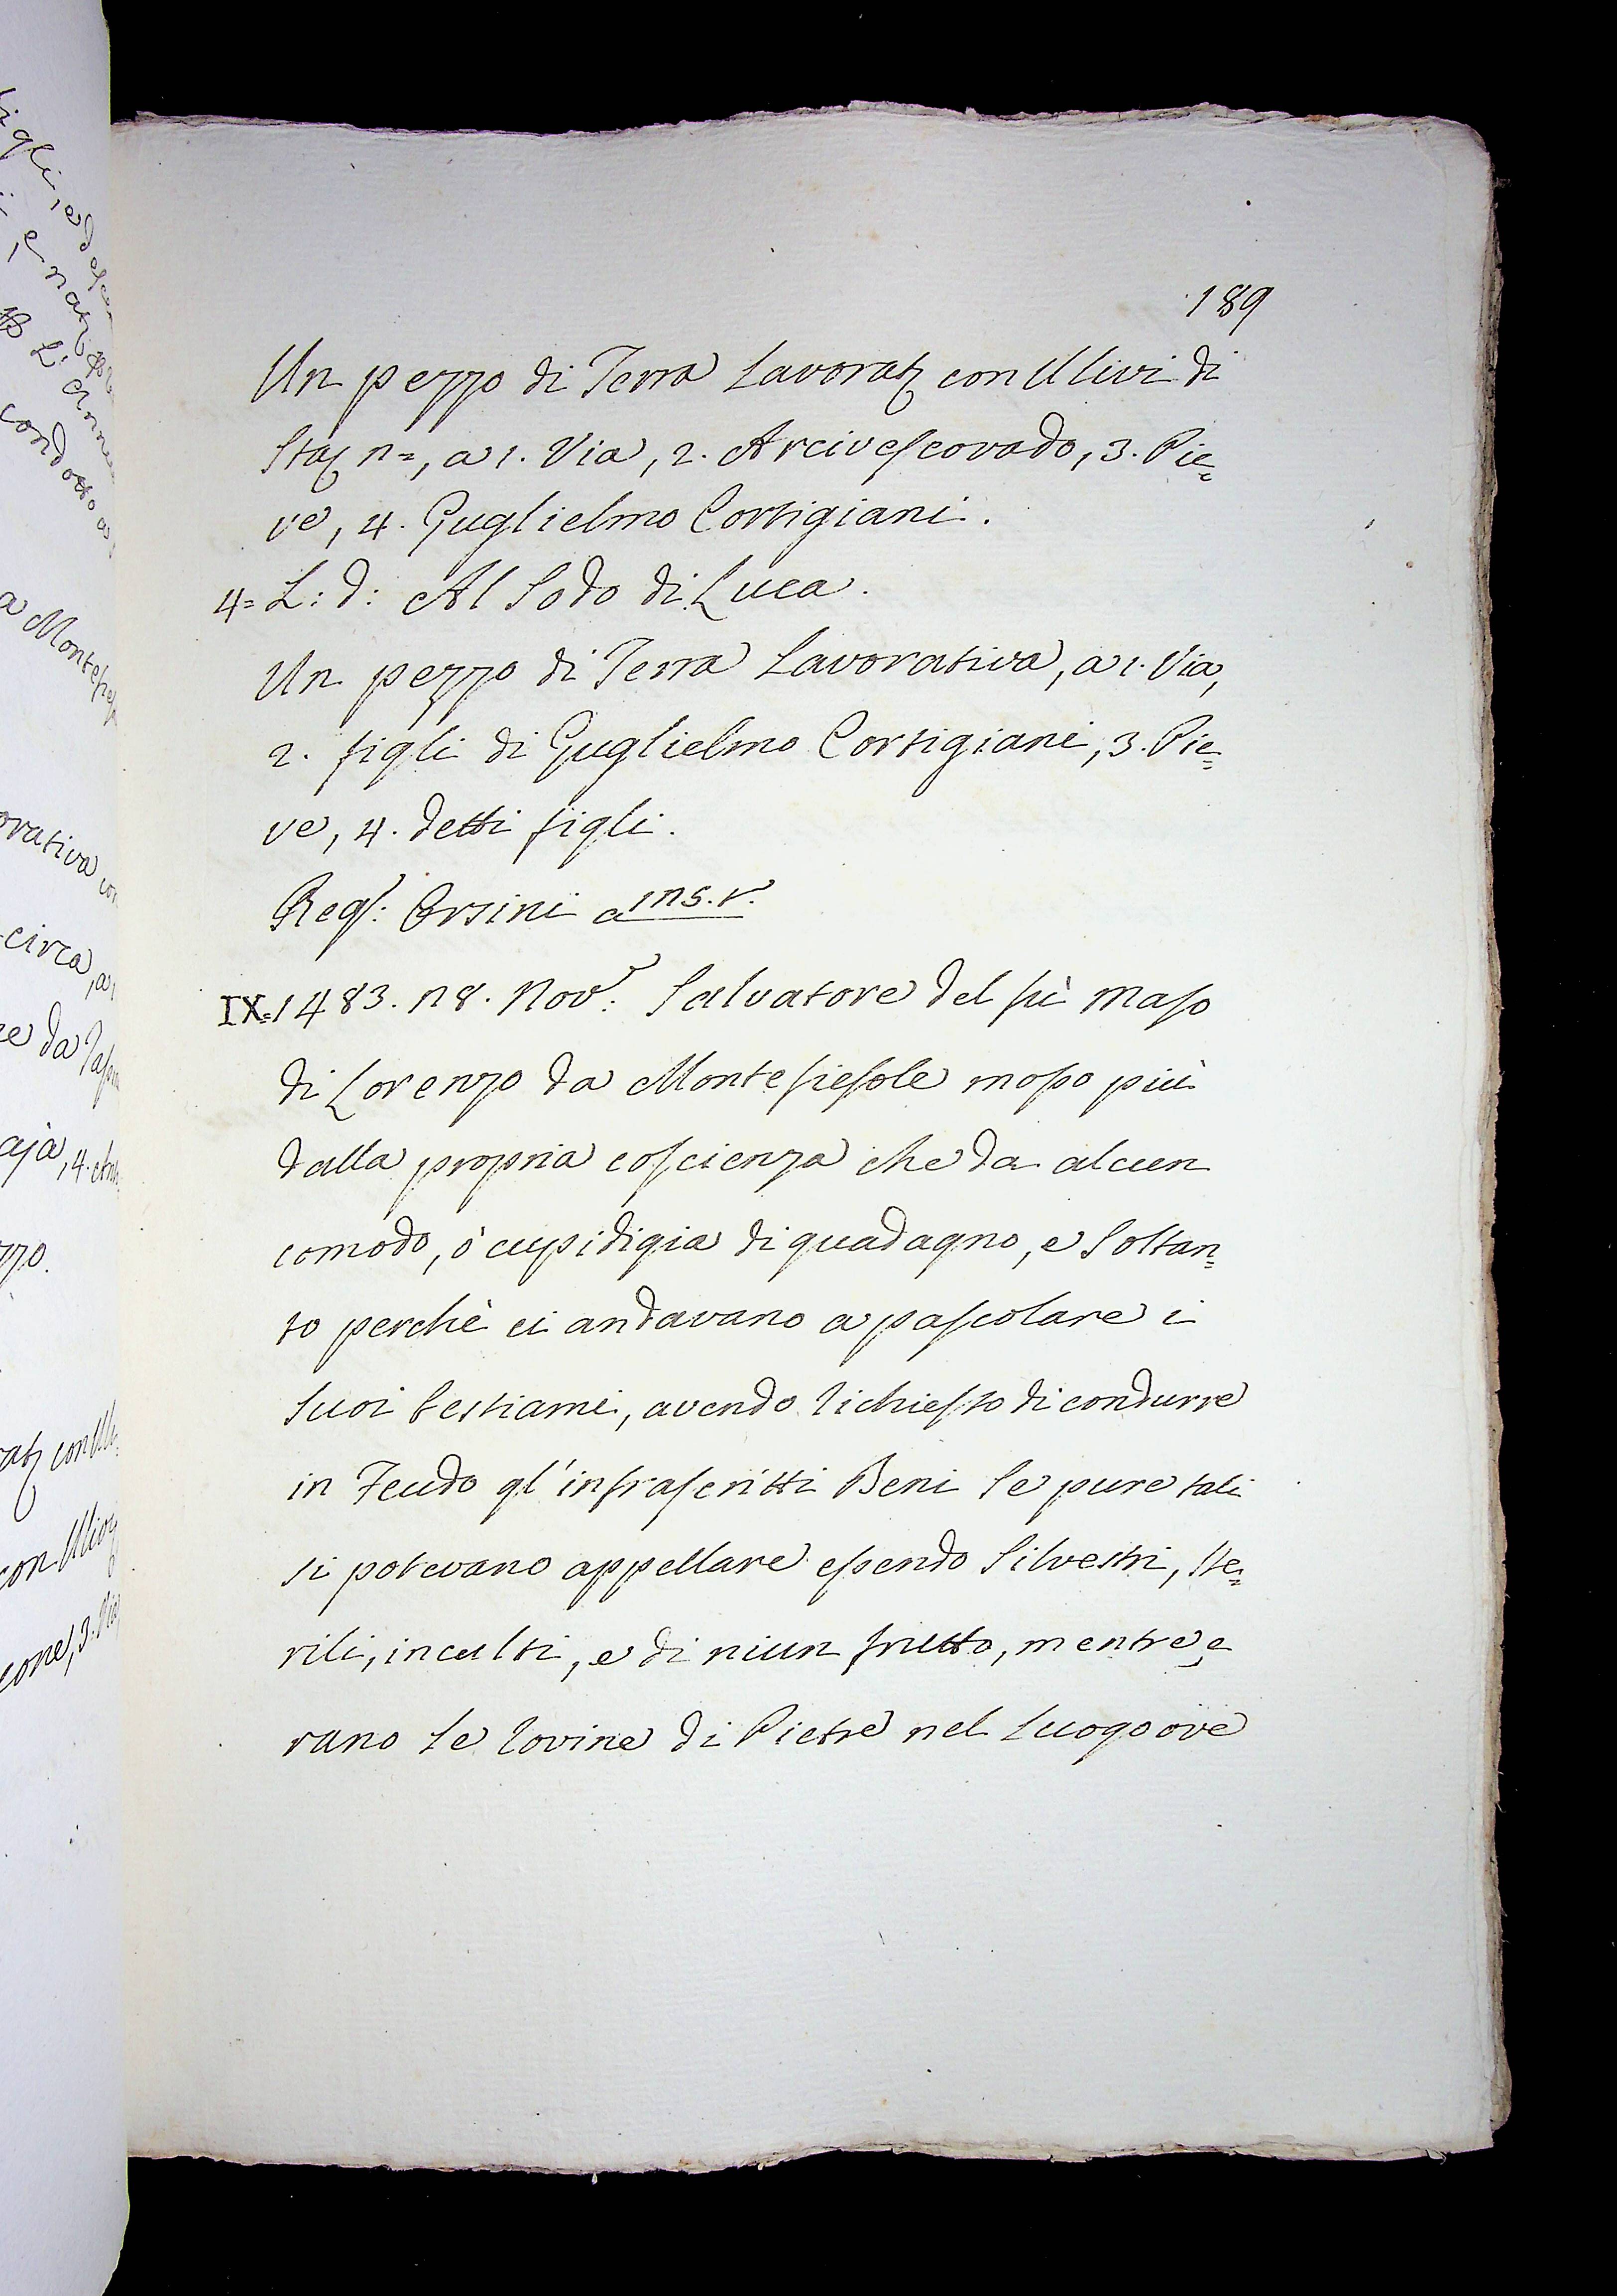 189
Un pezzo di Terra Lavorat: con Ulivi di
Sta: n=, a 1. Via, 2. Arcivescovado, 3. Pie=
ve, 4. Guglielmo Cortigiani.
4= L: d: Al Sodo di Luca.
Un pezzo di Terra Lavorativa, a 1. Via,
2. figli di Guglielmo Cortigiani, 3. Pie=
ve, 4. detti figli.
Rog: Orsini a
IX. 1483. 18. Nov: Salvatore del fù Maso
di Lorenzo da Montefiesole mosso più
dalla propria coscienza che da alcun
comodo, ò cupidigia di guadagno, e Soltan=
to perchè ci andavano a pascolare i
Suoi bestiami, avendo richiesto di condurre
in Feudo gl'infrascritti Beni Se pure tali
si potevano appellare essendo Silvestri, Ste=
rili, inculti, e di niun frutto, mentre e
rano le rovine di Pietre nel Luogo ove